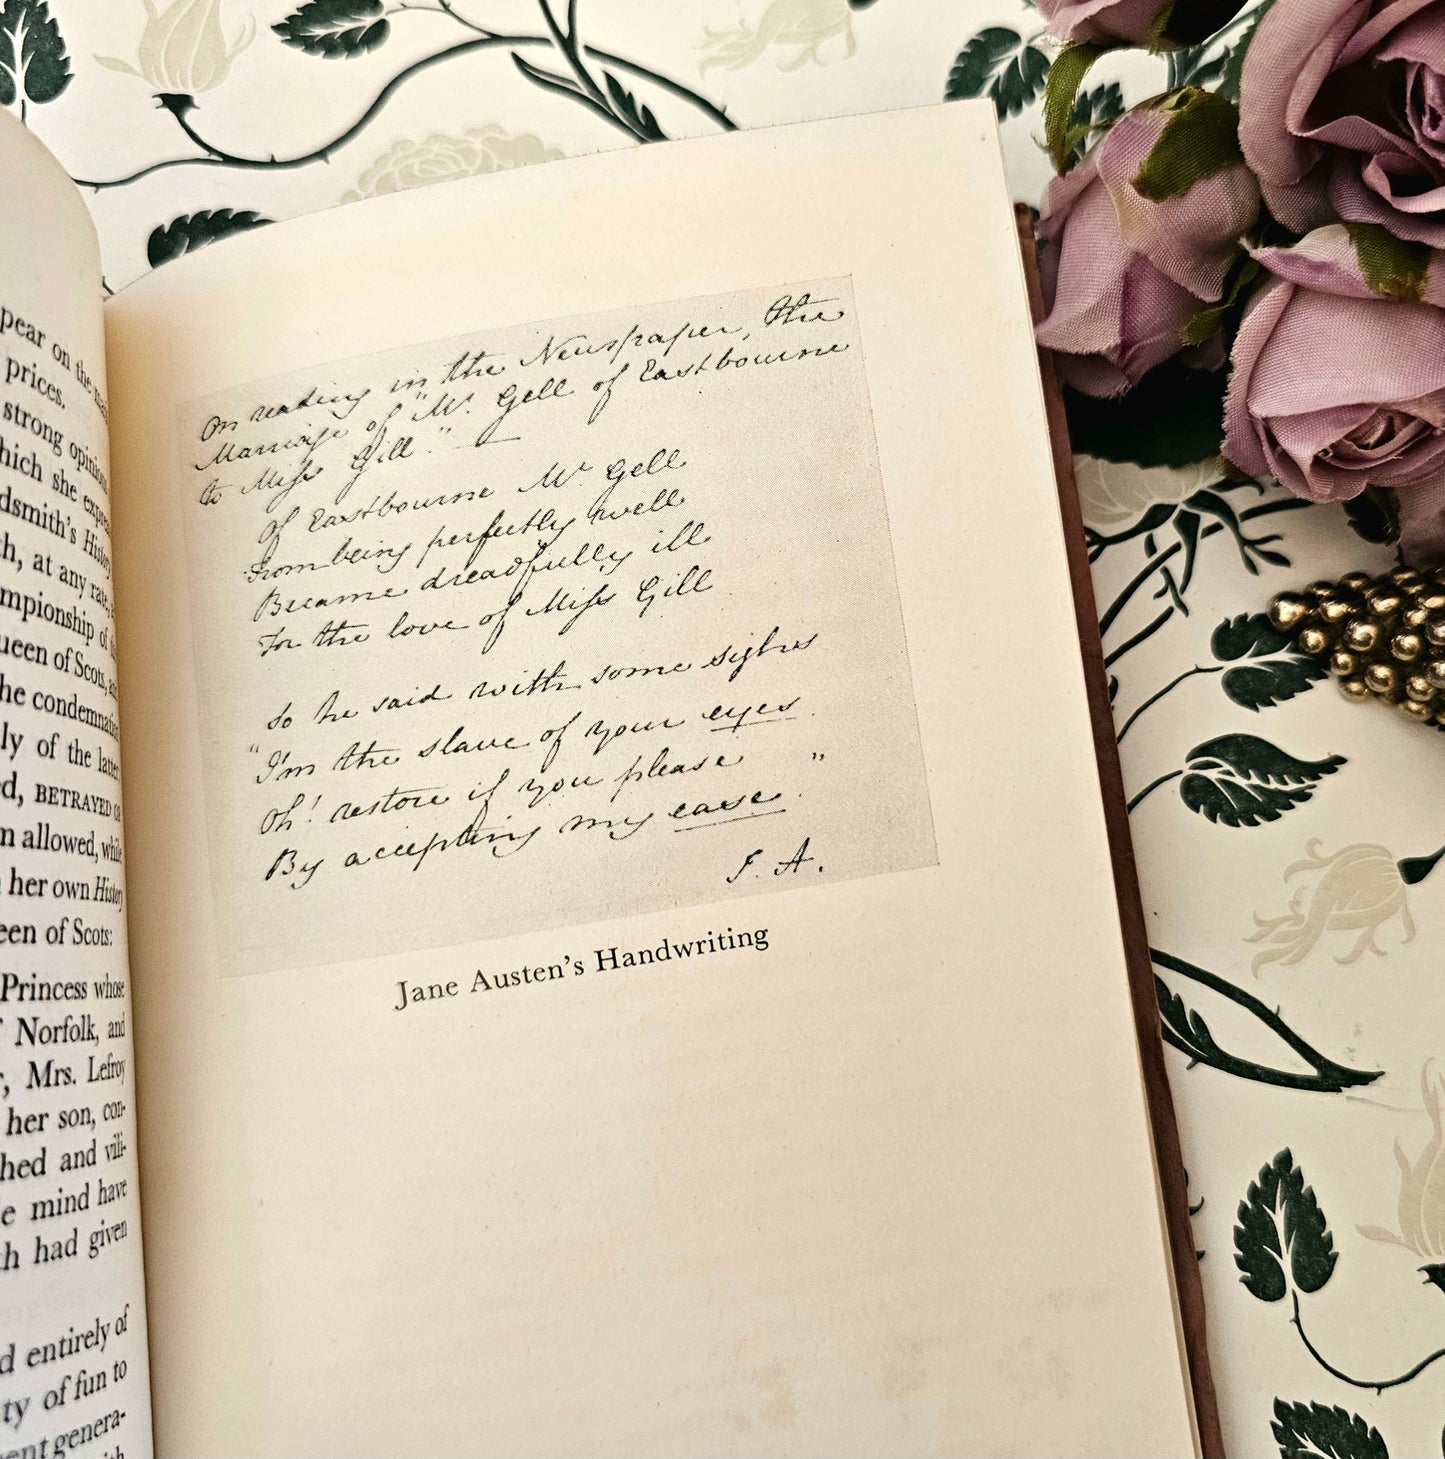 pear on the
prices.
strong opinions
which she expre
dsmith's History
th, at any rate,
mpionship of
ueen of Scots, an
he condemnation
ly of the latte
d, BETRAYED
n allowed, while
her own Histo
een of Scots:
Princess whose
f Norfolk, and
r, Mrs. Lefroy
her son, con-
hed and vili-
e mind have
th had given
d entirely of
ty of fun to
ent genera-
On reading in the Newspaper, the
Marriage of "Mr. Gell of Eastbourne
to Miss Gill."
Of Eastbourne Mr Gell
From being perfectly well
Became dreadfully ill
For the love of Miss Gill
So he said with some sighs
"I'm the slave of your eyes
Oh! restore if you please
By accepting my ease."
J. A.
Jane Austen's Handwriting